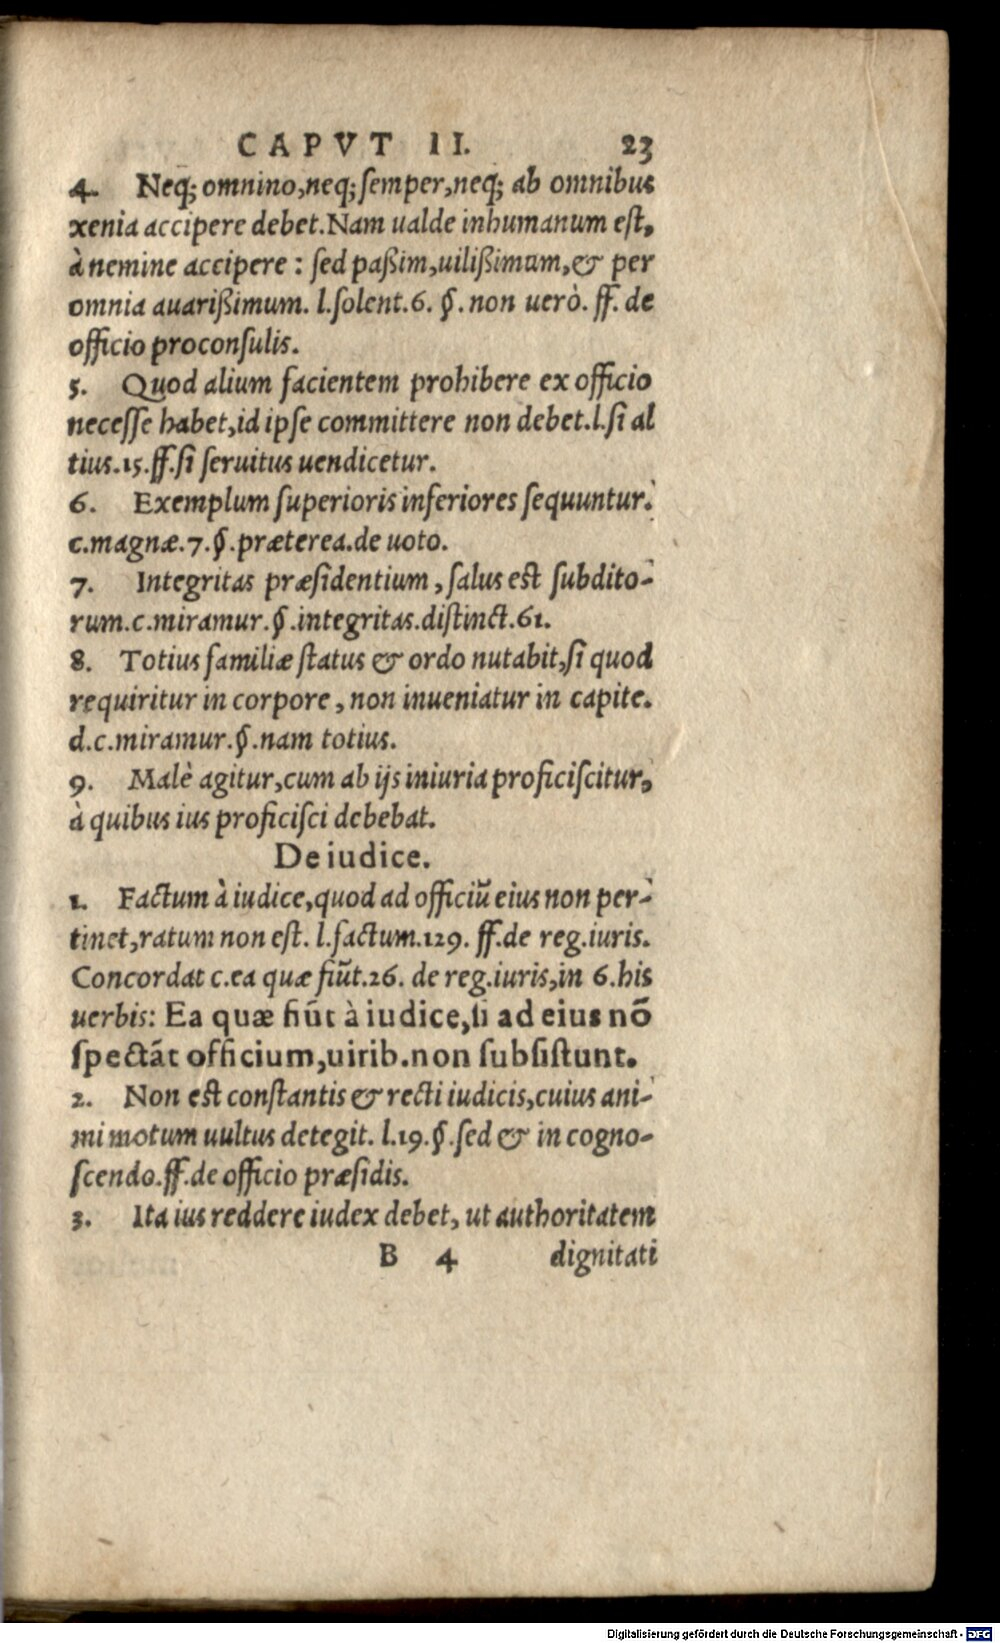 CAPVT II. 23
4. Neq; omnino,neq; ſemper,neq; ab omnibus
xenia accipere debet.Nam ualde inhumanum eſt,
à nemine accipere : ſed paßim,uilißimum,& per
omnia auarißimum. l.ſolent.6. §. non uerò. ff. de
officio proconſulis.
5. Quod alium facientem prohibere ex officio
neceſſe habet,id ipſe committere non debet.l.ſi al
tius.15.ff.ſi ſeruitus uendicetur.
6. Exemplum ſuperioris inferiores ſequuntur.
c.magnæ.7.§.præterea.de uoto.
7. Integritas præſidentium, ſalus eſt ſubdito-
rum.c.miramur.§.integritas.diſtinct.61.
8. Totius familiæ ſtatus & ordo nutabit,ſi quod
requiritur in corpore, non inueniatur in capite.
d.c.miramur.§.nam totius.
9. Malè agitur,cum ab ijs iniuria proficiſcitur,
à quibus ius proficiſci debebat.
De iudice.
1. Factum à iudice,quod ad officiũ eius non per-
tinet,ratum non eſt. l.factum.129. ff.de reg.iuris.
Concordat c.ea quæ fiũt.26. de reg.iuris,in 6.his
uerbis: Ea quæ fiũt à iudice,ſi ad eius nõ
ſpectãt officium,uirib.non ſubſiſtunt.
2. Non eſt conſtantis & recti iudicis,cuius ani-
mi motum uultus detegit. l.19.§.ſed & in cogno-
ſcendo.ff.de officio præſidis.
3. Ita ius reddere iudex debet, ut authoritatem
B 4 dignitati
Digitalisierung gefördert durch die Deutsche Forschungsgemeinschaft - DFG